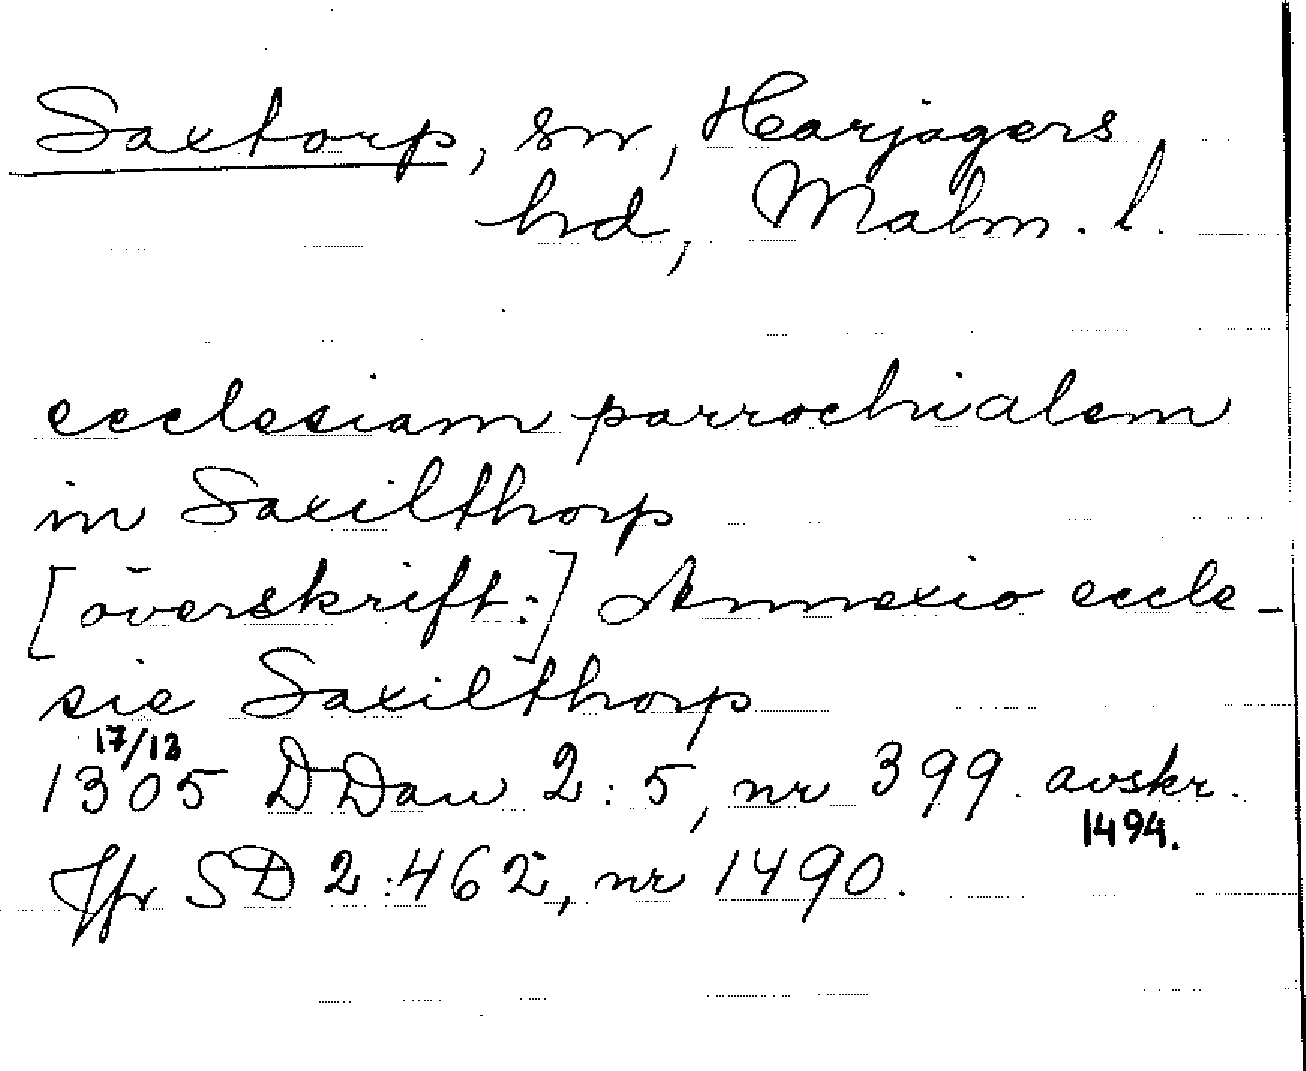 Saxtorp, sn, Harjagers
hd, Malm. l.
ecclesiam parrochialem
in Saxilthorp
[överskrift:] Annexio eccle-
sie Saxilthorp
17/12
1305 DDan 2:5, nr 399 avskr.
1494.
Jfr SD 2:462, nr 1490.